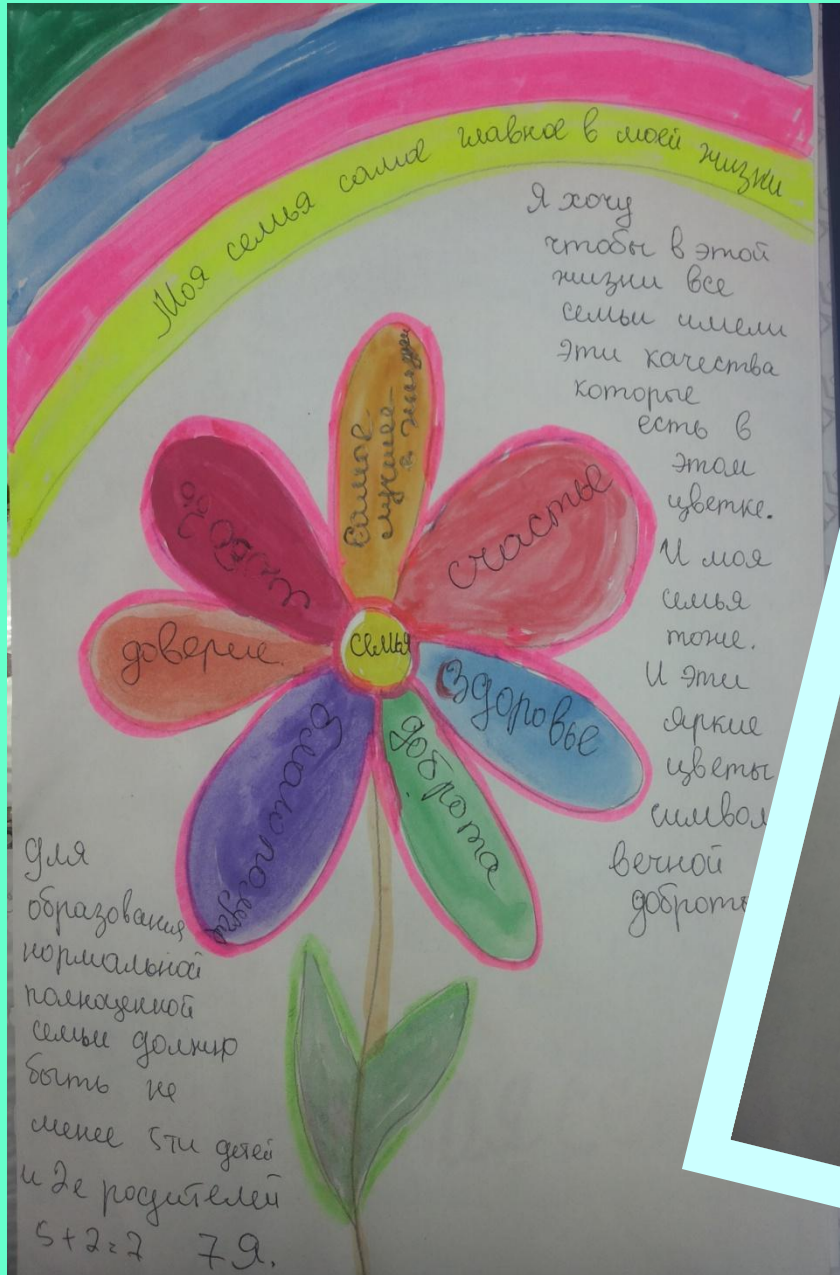 Моя семья самое главное в моей жизни
Я хочу
чтобы в этой
жизни все
семьи имели
эти качества
которые
есть в
этом
цветке.
И моя
семья
тоже.
И эти
яркие
цветы
символ
вечной
доброты
Самое
лучшее
в жизни
счастье
любовь
доверие
семья
здоровье
доброта
благополучие
Для
образования
нормальной
полноценной
семьи должно
быть не
менее 5ти детей
и 2е родителей
5+2=7 7Я.